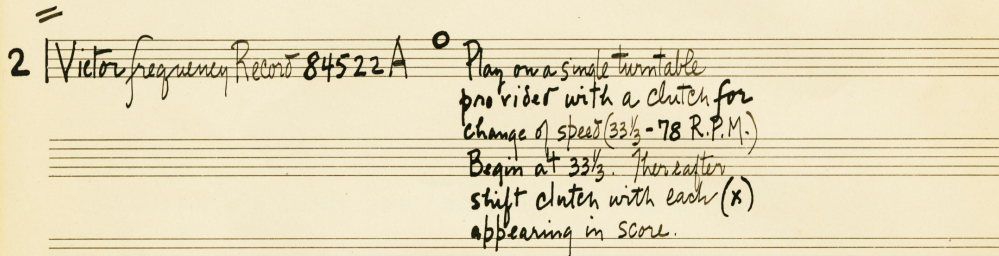 2 Victor frequency Record 84522 A
Play on a single turntable
provided with a clutch for
change of speed (33⅓ - 78 R.P.M.)
Begin at 33⅓. Thereafter
shift clutch with each (x)
appearing in score.